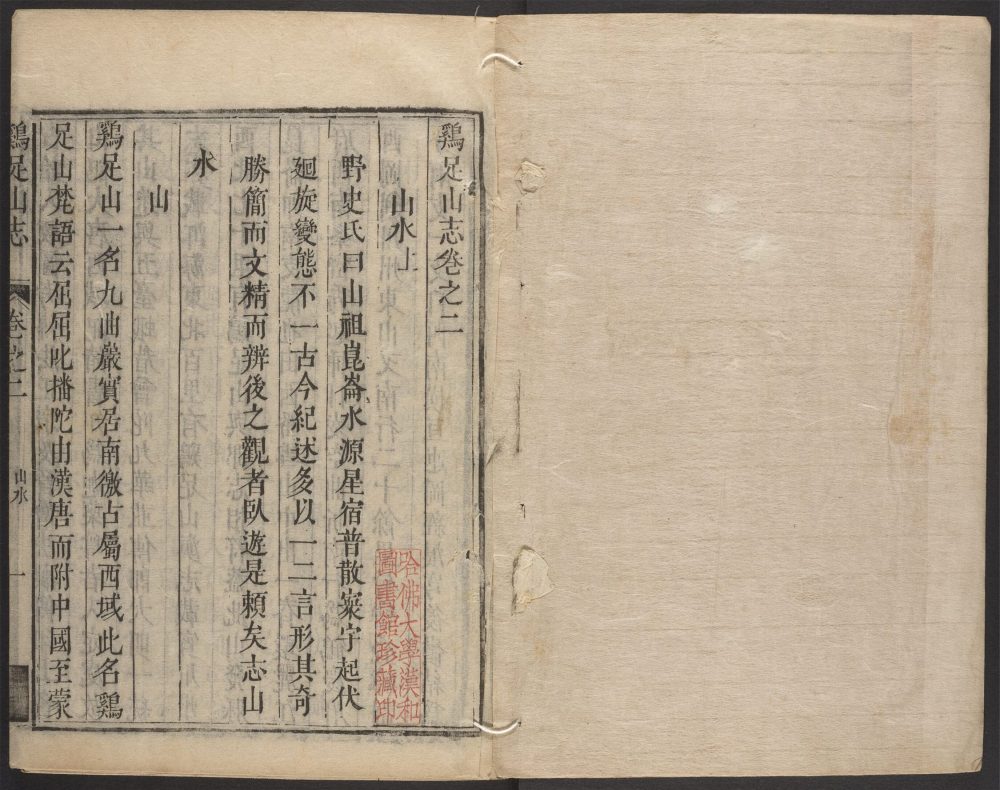 鷄足山志卷之二
山水上
野史氏曰山祖崑崙水源星宿普散寰宇起伏
廻旋變態不一古今紀述多以一二言形其奇
勝簡而文精而辨後之觀者臥遊是頼矣志山
水
山
鷄足山一名九曲巖實居南徼古屬西域此名鷄
足山梵語云屈屈叱播陀山漢唐而附中國至蒙
鷄足山志
卷之二
山水
一
哈佛大學漢和
圖書館珍藏印